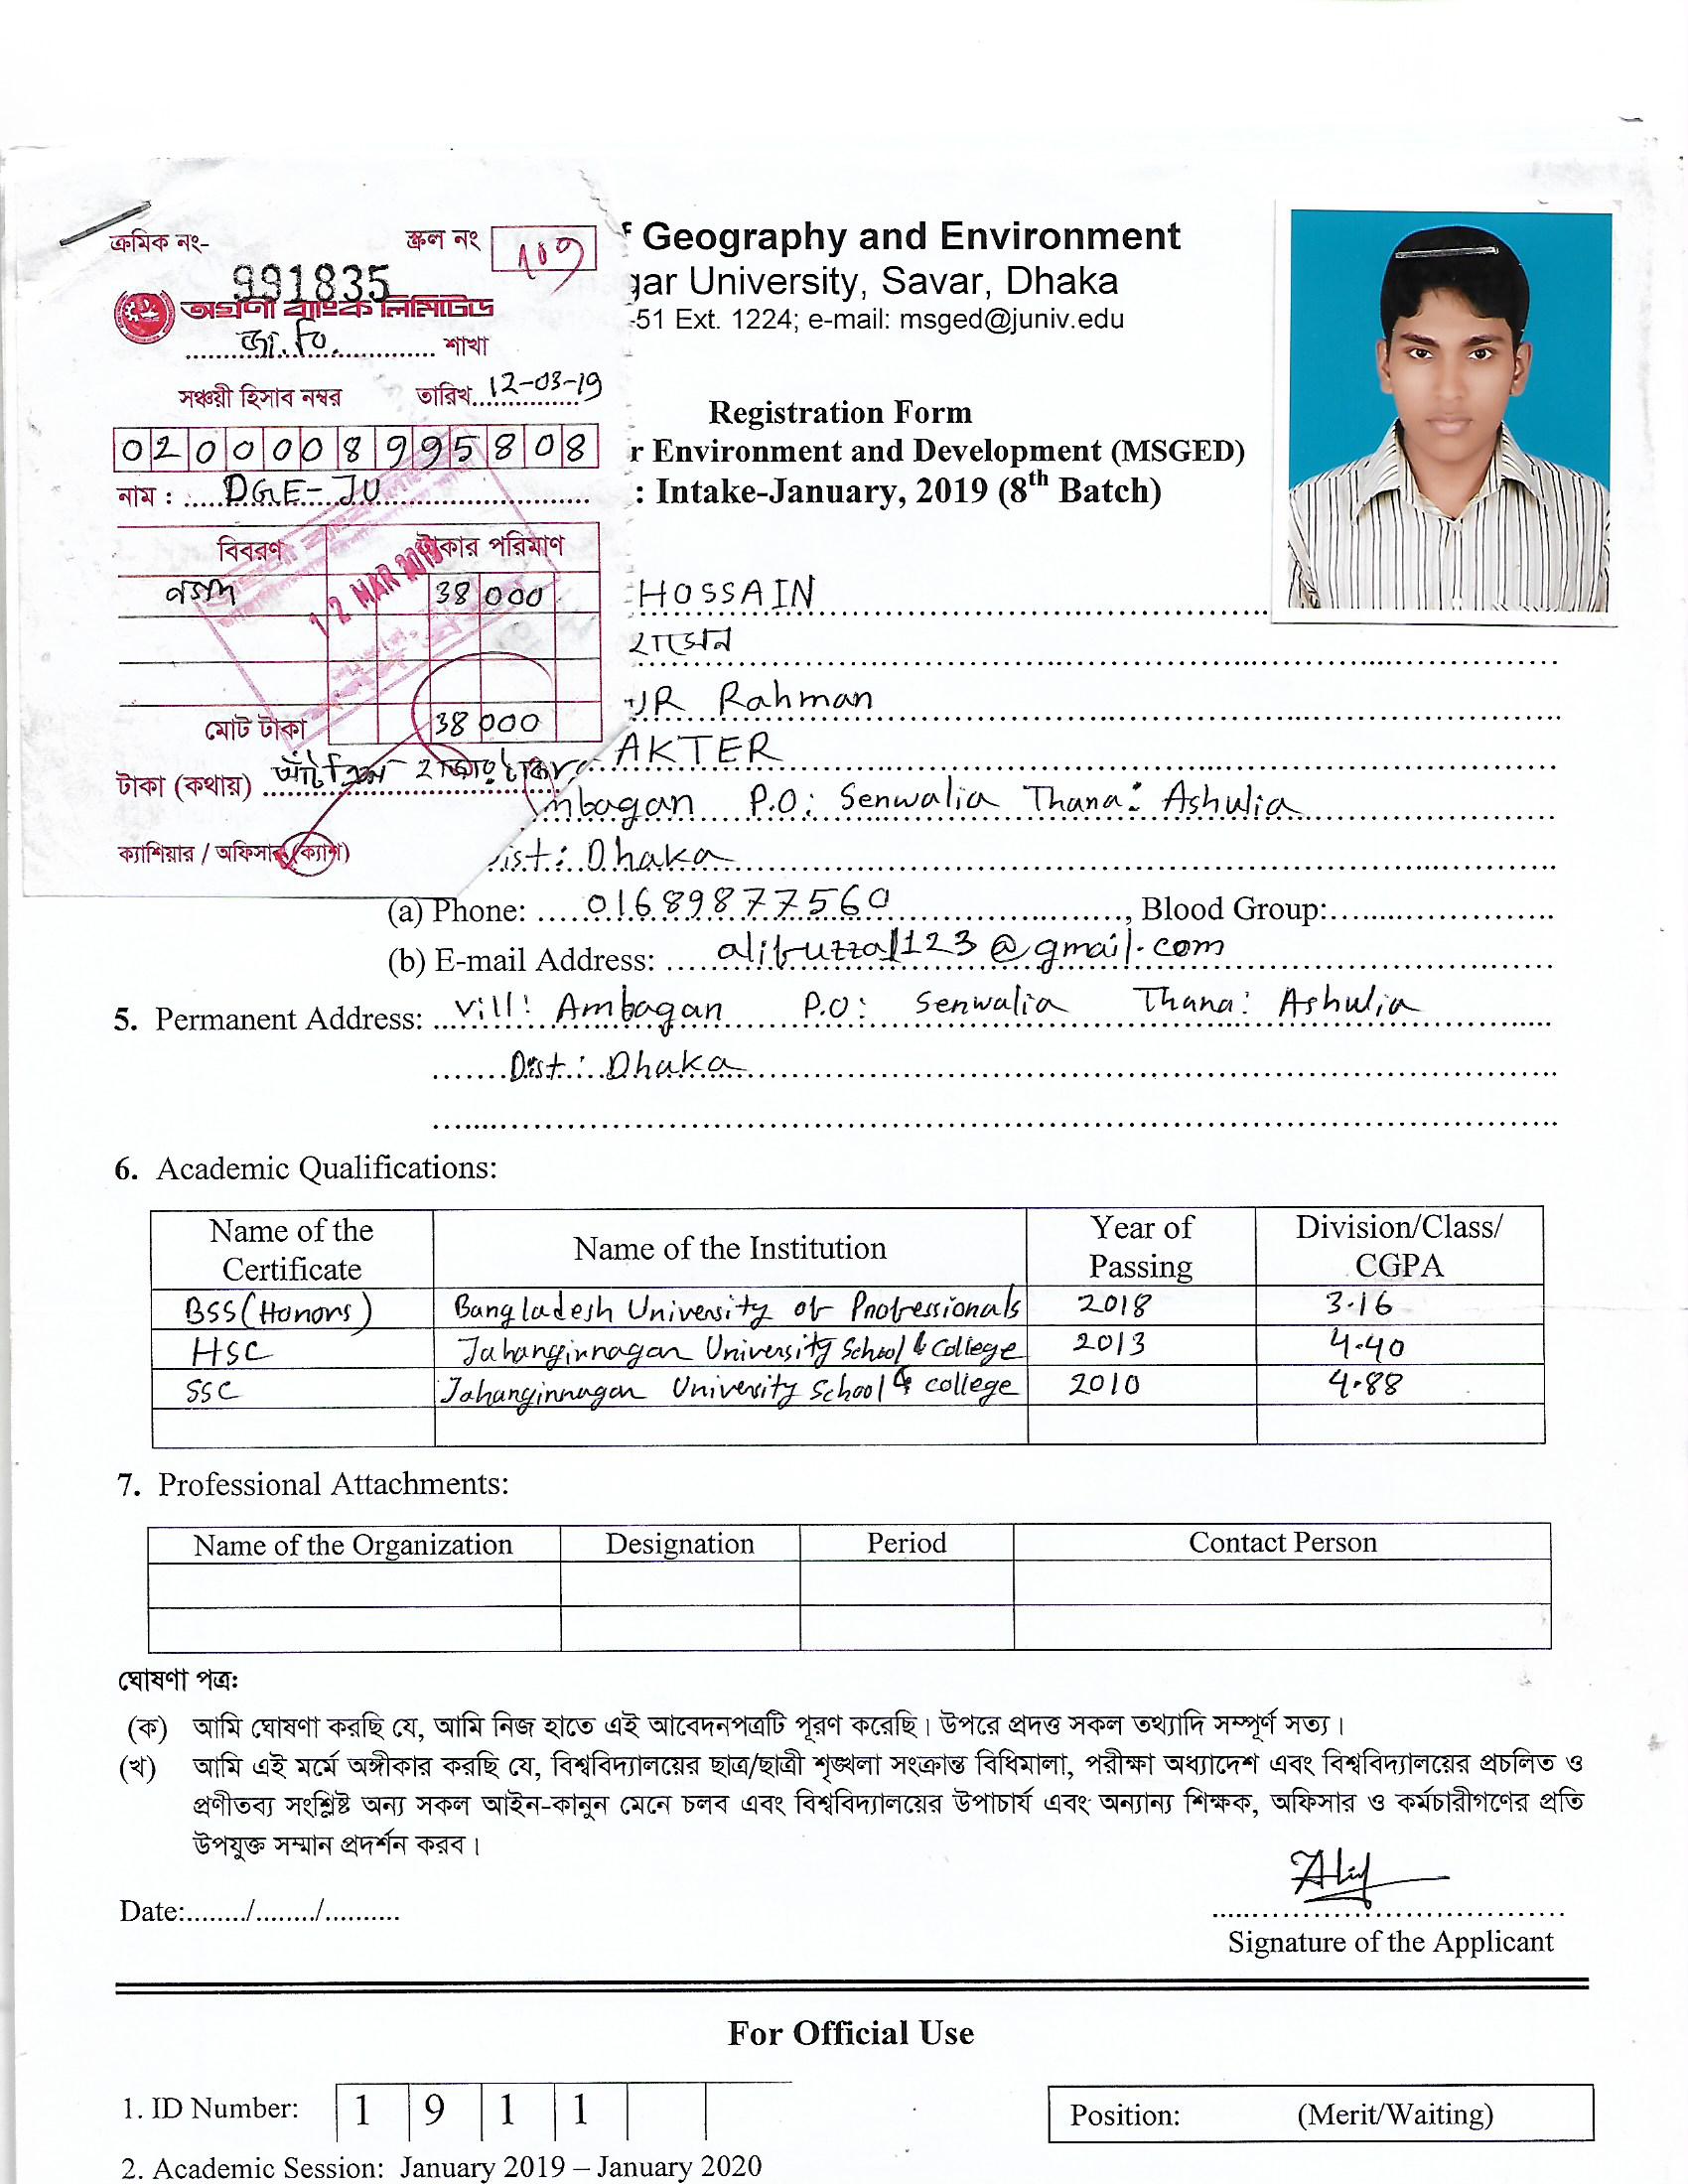 ক্রমিক নং-
স্ক্রল নং 109
991835
অগ্রণী ব্যাংক লিমিটেড
জা.বি. শাখা
সঞ্চয়ী হিসাব নম্বর তারিখ 12-03-19
0200008995808
নাম : DGE-JU
বিবরণ টাকার পরিমাণ
নগদ 38 000
12 MAR 2019
মোট টাকা 38 000
টাকা (কথায়) আটত্রিশ হাজার টাকা
ক্যাশিয়ার / অফিসার (ক্যাশ)
Geography and Environment
gar University, Savar, Dhaka
-51 Ext. 1224; e-mail: msged@juniv.edu
Registration Form
r Environment and Development (MSGED)
: Intake-January, 2019 (8th Batch)
HOSSAIN
হোসেন
UR Rahman
AKTER
mbagan P.O: Senwalia Thana: Ashulia
Dist: Dhaka
(a) Phone: 01689877560, Blood Group:
(b) E-mail Address: alifuzzal123@gmail.com
5. Permanent Address: Vill: Ambagan P.O: Senwalia Thana: Ashulia
Dist: Dhaka
6. Academic Qualifications:
Name of the Certificate Name of the Institution Year of Passing Division/Class/ CGPA
BSS(Honors) Bangladesh University of Professionals 2018 3.16
HSC Jahangirnagar University School & College 2013 4.40
SSC Jahangirnagar University School & college 2010 4.88
7. Professional Attachments:
Name of the Organization Designation Period Contact Person
ঘোষণা পত্র:
(ক) আমি ঘোষণা করছি যে, আমি নিজ হাতে এই আবেদনপত্রটি পূরণ করেছি। উপরে প্রদত্ত সকল তথ্যাদি সম্পূর্ণ সত্য।
(খ) আমি এই মর্মে অঙ্গীকার করছি যে, বিশ্ববিদ্যালয়ের ছাত্র/ছাত্রী শৃঙ্খলা সংক্রান্ত বিধিমালা, পরীক্ষা অধ্যাদেশ এবং বিশ্ববিদ্যালয়ের প্রচলিত ও
প্রণীতব্য সংশ্লিষ্ট অন্য সকল আইন-কানুন মেনে চলব এবং বিশ্ববিদ্যালয়ের উপাচার্য এবং অন্যান্য শিক্ষক, অফিসার ও কর্মচারীগণের প্রতি
উপযুক্ত সম্মান প্রদর্শন করব।
Date:......../......../..........
Alif
Signature of the Applicant
For Official Use
1. ID Number: 1 9 1 1
Position: (Merit/Waiting)
2. Academic Session: January 2019 – January 2020